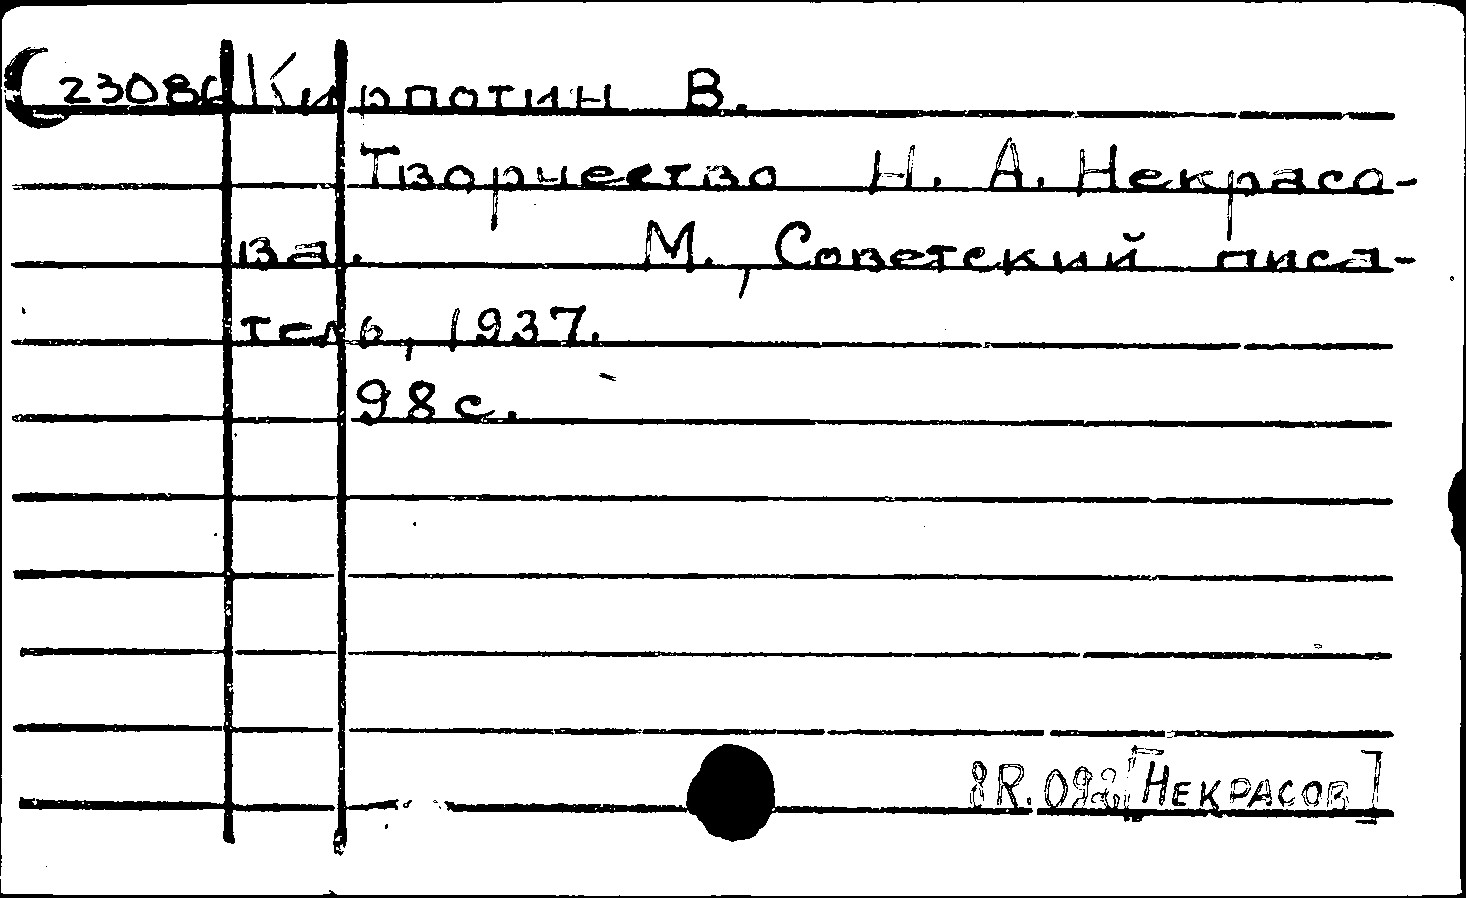 23086 Кирпотин В.
Творчество Н. А. Некрасо-
ва. М., Советский писа-
тель, 1937.
98 с.
8R.092[НЕКРАСОВ]